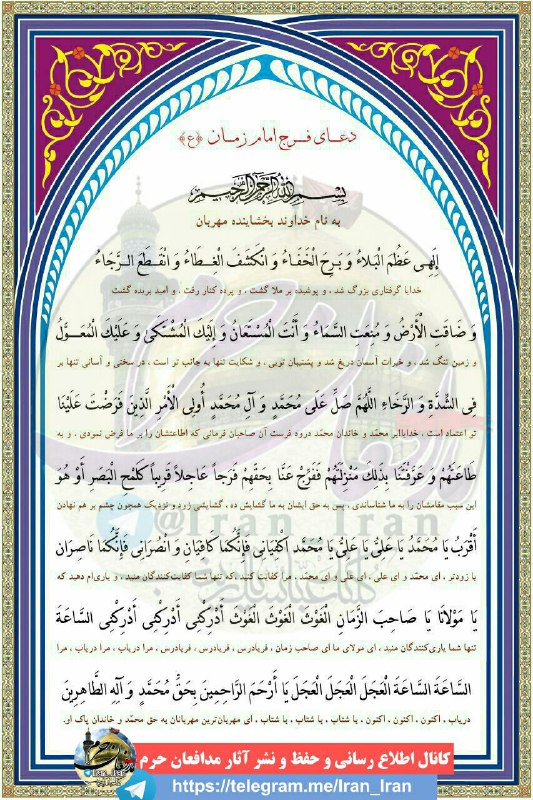 دعـای فـرج امام زمـان ﴿ع﴾
بِسْمِ اللهِ الرَّحْمنِ الرَّحيمِ
به نام خداوند بخشاینده مهربان
إِلَهِی عَظُمَ الْبَلاءُ وَ بَرِحَ الْخَفَاءُ وَ انْکَشَفَ الْغِطَاءُ وَ انْقَطَعَ الرَّجَاءُ
خدایا گرفتاری بزرگ شد ، و پوشیده بر ملا گشت ، و پرده کنار رفت ، و امید بریده گشت
وَ ضَاقَتِ الْأَرْضُ وَ مُنِعَتِ السَّمَاءُ وَ أَنْتَ الْمُسْتَعَانُ وَ إِلَیْکَ الْمُشْتَکَی وَ عَلَیْکَ الْمُعَـوَّلُ
و زمین تنگ شد ، و خیرات آسمان دریغ شد و پشتیبان تویی ، و شکایت تنها به جانب تو است ، در سختی و آسانی تنها بر
فِی الشِّدَّةِ وَ الرَّخَاءِ اللَّهُمَّ صَلِّ عَلَی مُحَمَّدٍ وَ آلِ مُحَمَّدٍ أُولِی الْأَمْرِ الَّذِینَ فَرَضْتَ عَلَیْنَا
تو اعتماد است ، خدایا!بر محمّد و خاندان محمّد درود فرست آن صاحبان فرمانی که اطاعتشان را بر ما فرض نمودی ، و به
طَاعَتَهُمْ وَ عَرَّفْتَنَا بِذَلِکَ مَنْزِلَتَهُمْ فَفَرِّجْ عَنَّا بِحَقِّهِمْ فَرَجاً عَاجِلاً قَرِیباً کَلَمْحِ الْبَصَرِ أَوْ هُوَ
این سبب مقامشان را به ما شناساندی ، پس به حق ایشان به ما گشایش ده ، گشایشی زود و نزدیک همچون چشم بر هم نهادن
@Iran_Iran
أَقْرَبُ یَا مُحَمَّدُ یَا عَلِیُّ یَا عَلِیُّ یَا مُحَمَّدُ اکْفِیَانِی فَإِنَّکُمَا کَافِیَانِ وَ انْصُرَانِی فَإِنَّکُمَا نَاصِرَانِ
یا زودتر ، ای محمّد و ای علی ، ای علی و ای محمّد ، مرا کفایت کنید ،که تنها شما کفایت‌کنندگان منید ، و یاری‌ام دهید که
یَا مَوْلَانَا یَا صَاحِبَ الزَّمَانِ الْغَوْثَ الْغَوْثَ الْغَوْثَ أَدْرِکْنِی أَدْرِکْنِی أَدْرِکْنِی السَّاعَةَ
تنها شما یاری‌کنندگان منید ، ای مولای ما ای صاحب زمان ، فریادرس ، فریادرس ، فریادرس ، مرا دریاب ، مرا دریاب ، مرا
السَّاعَةَ السَّاعَةَ الْعَجَلَ الْعَجَلَ الْعَجَلَ یَا أَرْحَمَ الرَّاحِمِینَ بِحَقِّ مُحَمَّدٍ وَ آلِهِ الطَّاهِرِینَ
دریاب ، اکنون ، اکنون ، اکنون ، با شتاب ، با شتاب ، با شتاب ، ای مهربان‌ترین مهربانان به حق محمّد و خاندان پاک او.
کانال اطلاع رسانی و حفظ و نشر آثار مدافعان حرم
https://telegram.me/Iran_Iran